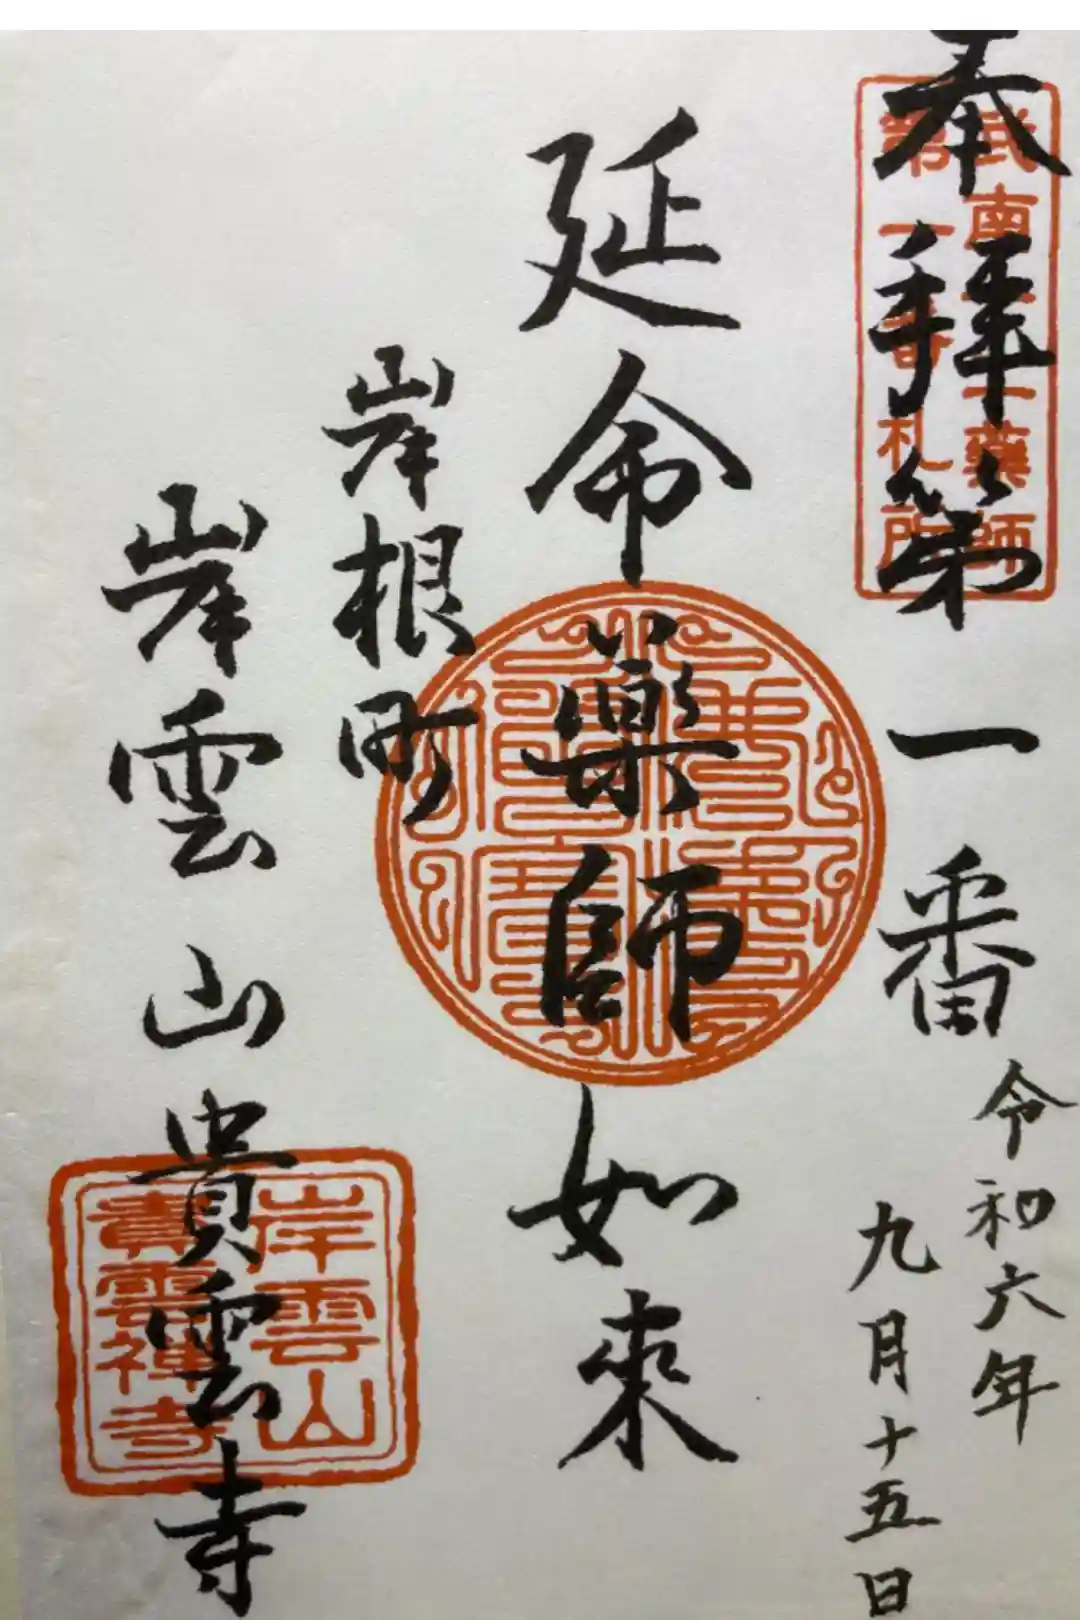 奉拜第一番
令和六年
九月十五日
延命藥師如來
岸根町
岸雲山貴雲寺
武南十二藥師
第一番札所
岸雲山
貴雲禅寺